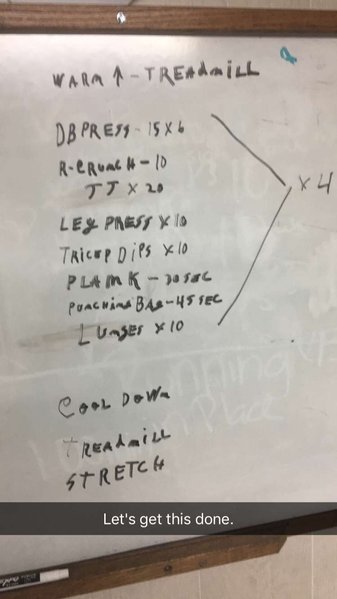 WARM ↑ - TREADMILL
DB PRESS - 15 X 6
R-CRUNCH - 10
JJ X 20
LEG PRESS X 10
TRICEP DIPS X 10
PLANK - 30 SEC
PUNCHING BAG - 45 SEC
LUNGES X 10
X 4
COOL DOWN
TREADMILL
STRETCH
Let's get this done.